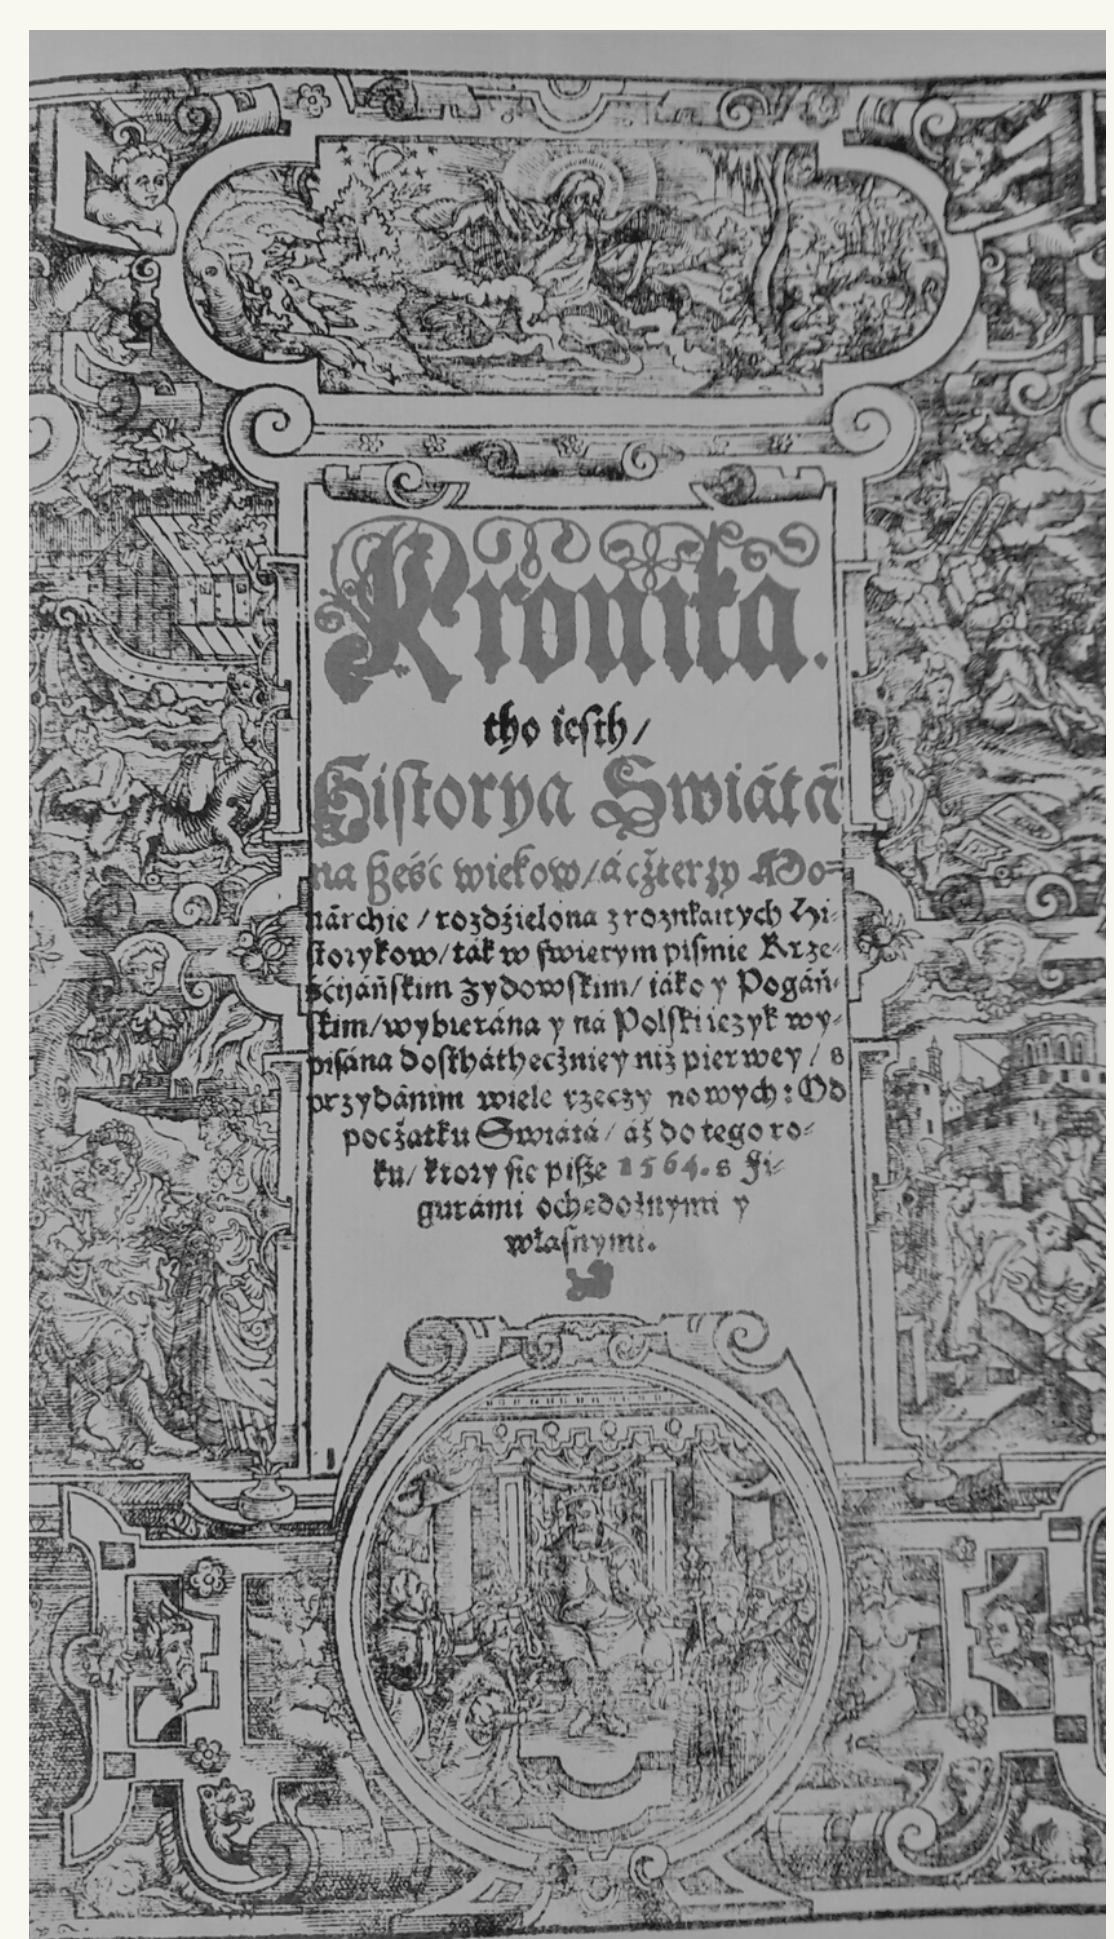 Kronika.
tho iesth/
Historya Swiátá
na ſześć wiekow/ á cżterzy Mo⸗
nárchie / rozdźielona z rozmáitych Hi⸗
ſtorykow/ ták w ſwiętym piśmie Krze⸗
śćijáńſkim Zydowſkim/ iáko y Pogáń⸗
ſkim/ wybieráná y ná Polſki ięzyk wy⸗
piſána doſtháthecżniey niż pierwey / s
przydánim wiele rzeczy nowych: Od
pocżatku Swiátá / áż do tego ro⸗
ku/ ktory ſie piſze 1564. s Fi⸗
gurámi ochędożnymi y
właſnymi.